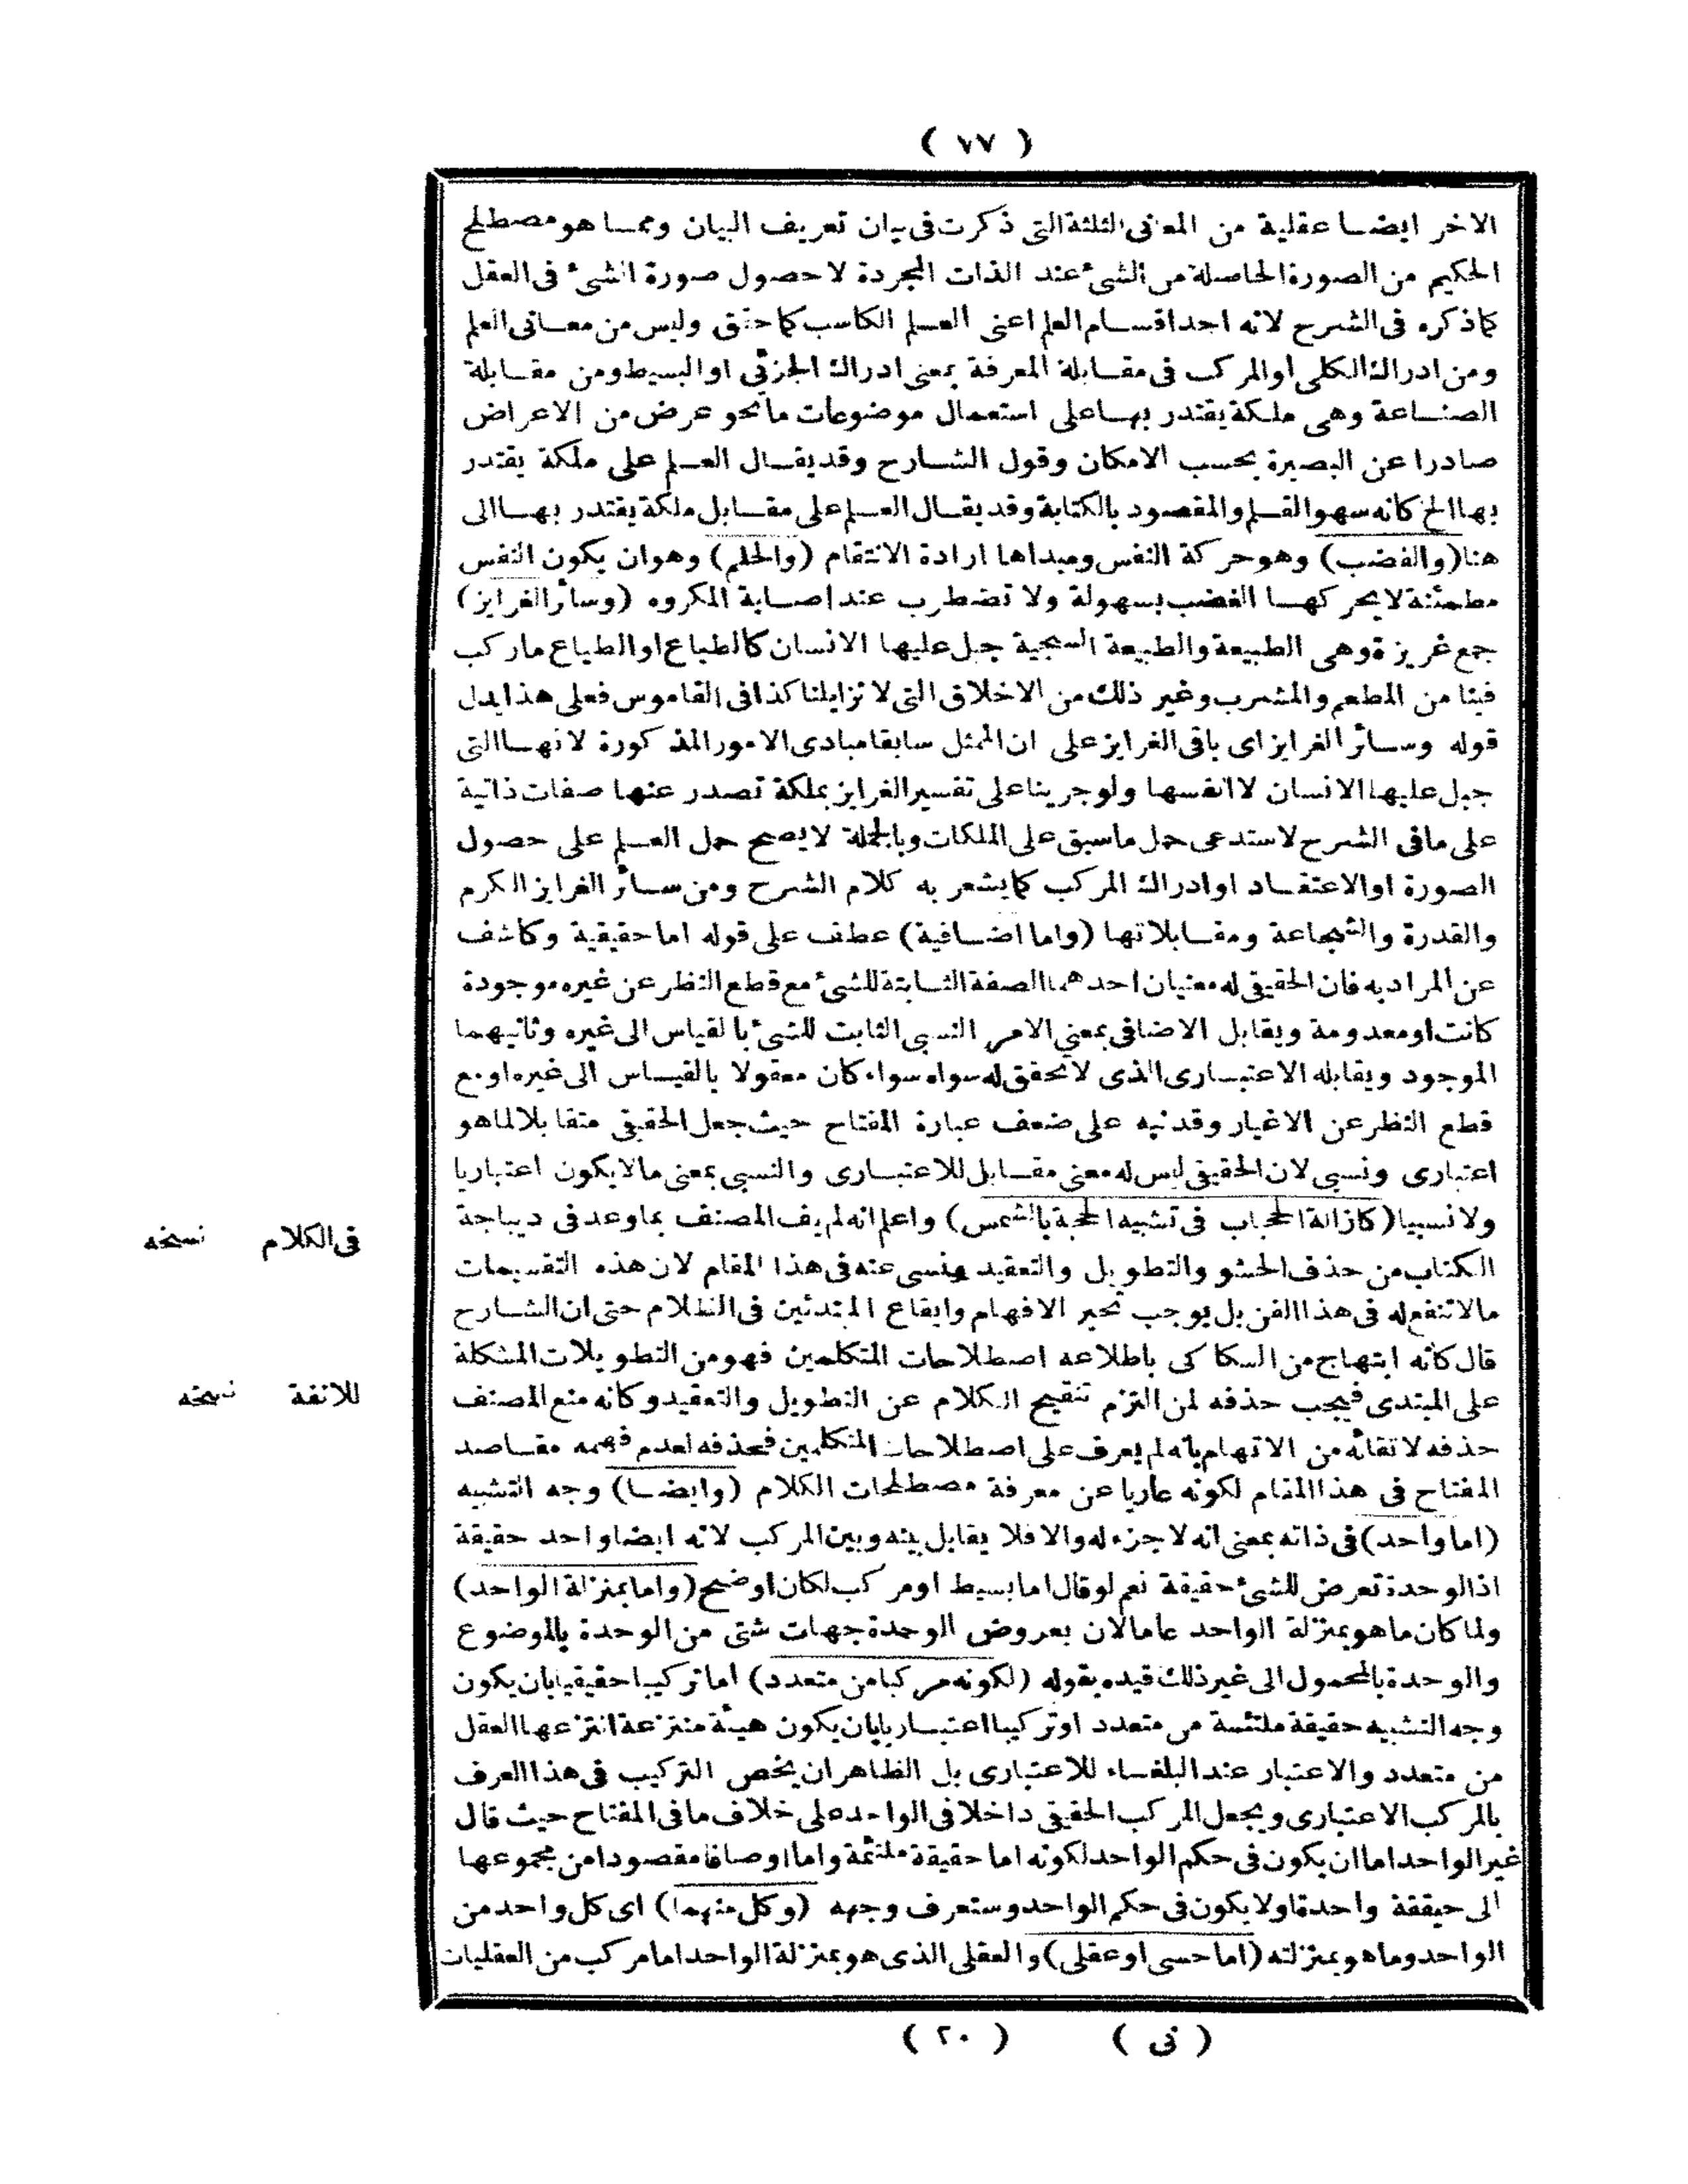 ( ٧٧ )
الاخر ايضا عقلية من المعانى الثلثة التى ذكرت فى بيان تعريف البيان ومما هو مصطلح
الحكيم من الصورة الحاصلة من الشئ عند الذات المجردة لا حصول صورة الشئ فى العقل
كما ذكره فى الشرح لانه احد اقسام العلم اعنى العلم الكاسب كما حقق وليس من معانى العلم
ومن ادراك الكلى او المركب فى مقابلة المعرفة بمعنى ادراك الجزئى او البسيط ومن مقابلة
الصناعة وهى ملكة يقتدر بها على استعمال موضوعات ما نحو غرض من الاعراض
صادرا عن البصيرة بحسب الامكان وقول الشارح وقد يقال العلم على ملكة يقتدر
بها الخ كانه سهو القلم والمقصود بالكتابة وقد يقال العلم على مقابل ملكة يقتدر بها الى
هنا (والغضب) وهو حركة النفس ومبداها ارادة الانتقام (والحلم) وهو ان يكون النفس
مطمئنة لا يحركها الغضب بسهولة ولا تضطرب عند اصابة المكروه (وسائر الغرايز)
جمع غريزة وهى الطبيعة والطبيعة السجية جبل عليها الانسان كالطباع او الطباع ما ركب
فينا من المطعم والمشرب وغير ذلك من الاخلاق التى لا تزايلنا كذا فى القاموس فعلى هذا يدل
قوله وسائر الغرايز اى باقى الغرايز على ان الممثل سابقا مبادى الامور المذكورة لانها التى
جبل عليها الانسان لا انفسها ولو جرينا على تفسير الغرايز بملكة تصدر عنها صفات ذاتية
على ما فى الشرح لاستدعى حمل ما سبق على الملكات وبالجملة لا يصح حمل العلم على حصول
الصورة او الاعتقاد او ادراك المركب كما يشعر به كلام الشرح ومن سائر الغرايز الكرم
والقدرة والشجاعة ومقابلاتها (واما اضافية) عطف على قوله اما حقيقية وكاشف
عن المراد به فان الحقيقى له معنيان احدهما الصفة الثابتة للشئ مع قطع النظر عن غيره موجودة
كانت او معدومة ويقابل الاضافى بمعنى الامر النسبى الثابت للشئ بالقياس الى غيره وثانيهما
الموجود ويقابله الاعتبارى الذى لا تحقق له سواه سواء كان معقولا بالقياس الى غيره او مع
قطع النظر عن الاغيار وقد نبه على ضعف عبارة المفتاح حيث جعل الحقيقى متقابلا لما هو
اعتبارى ونسبى لان الحقيقى ليس له معنى مقابل للاعتبارى والنسبى بمعنى ما لا يكون اعتباريا
ولا نسبيا (كازالة الحجاب فى تشبيه الحجة بالشمس) واعلم انه لم يف المصنف بما وعد فى ديباجة
فى الكلام نسخه
الكتاب من حذف الحشو والتطويل والتعقيد ونسى عنه فى هذا المقام لان هذه التقسيمات
ما لا تنفع له فى هذا الفن بل يوجب تحير الافهام وايقاع المبتدئين فى الظلام حتى ان الشارح
قال كانه ابتهاج من السكاكى باطلاعه اصطلاحات المتكلمين فهو من التطويلات المشكلة
على المبتدى فيجب حذفه لمن التزم تنقيح الكلام عن التطويل والتعقيد وكانه منع المصنف
للانفة نسخه
حذفه لاتقائه من الاتهام بانه لم يعرف على اصطلاحات المتكلمين فحذفه لعدم فهمه مقاصد
المفتاح فى هذا المقام لكونه عاريا عن معرفة مصطلحات الكلام (وايضا) وجه التشبيه
(اما واحد) فى ذاته بمعنى انه لا جزء له والا فلا يقابل بينه وبين المركب لانه ايضا واحد حقيقة
اذ الوحدة تعرض للشئ حقيقة نعم لو قال اما بسيط او مركب لكان اوضح (واما بمنزلة الواحد)
ولما كان ما هو بمنزلة الواحد عاما لان بعروض الوحدة جهات شتى من الوحدة بالموضوع
والوحدة بالمحمول الى غير ذلك قيده بقوله (لكونه مركبا من متعدد) اما تركيبا حقيقيا بان يكون
وجه التشبيه حقيقة ملتئمة من متعدد او تركيبا اعتباريا بان يكون هيئة منتزعة انتزعها العقل
من متعدد والاعتبار عند البلغاء للاعتبارى بل الظاهر ان يخص التركيب فى هذا العرف
بالمركب الاعتبارى ويجعل المركب الحقيقى داخلا فى الواحد على خلاف ما فى المفتاح حيث قال
غير الواحد اما ان يكون فى حكم الواحد لكونه اما حقيقة ملتئمة واما اوصافا مقصودا من مجموعها
الى حيققة واحدة او لا يكون فى حكم الواحد وستعرف وجهه (وكل منهما) اى كل واحد من
الواحد وما هو بمنزلته (اما حسى او عقلى) والعقلى الذى هو بمنزلة الواحد اما مركب من العقليات
( نى ) ( ٢٠ )